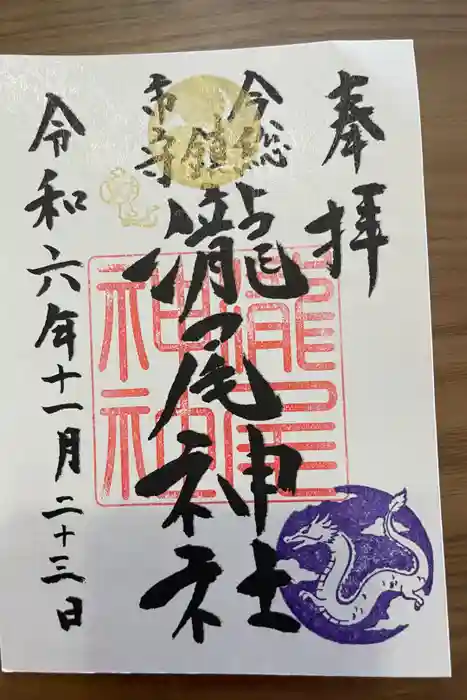 奉拝
今市
総鎮守
瀧尾神社
瀧尾神社
令和六年十一月二十三日